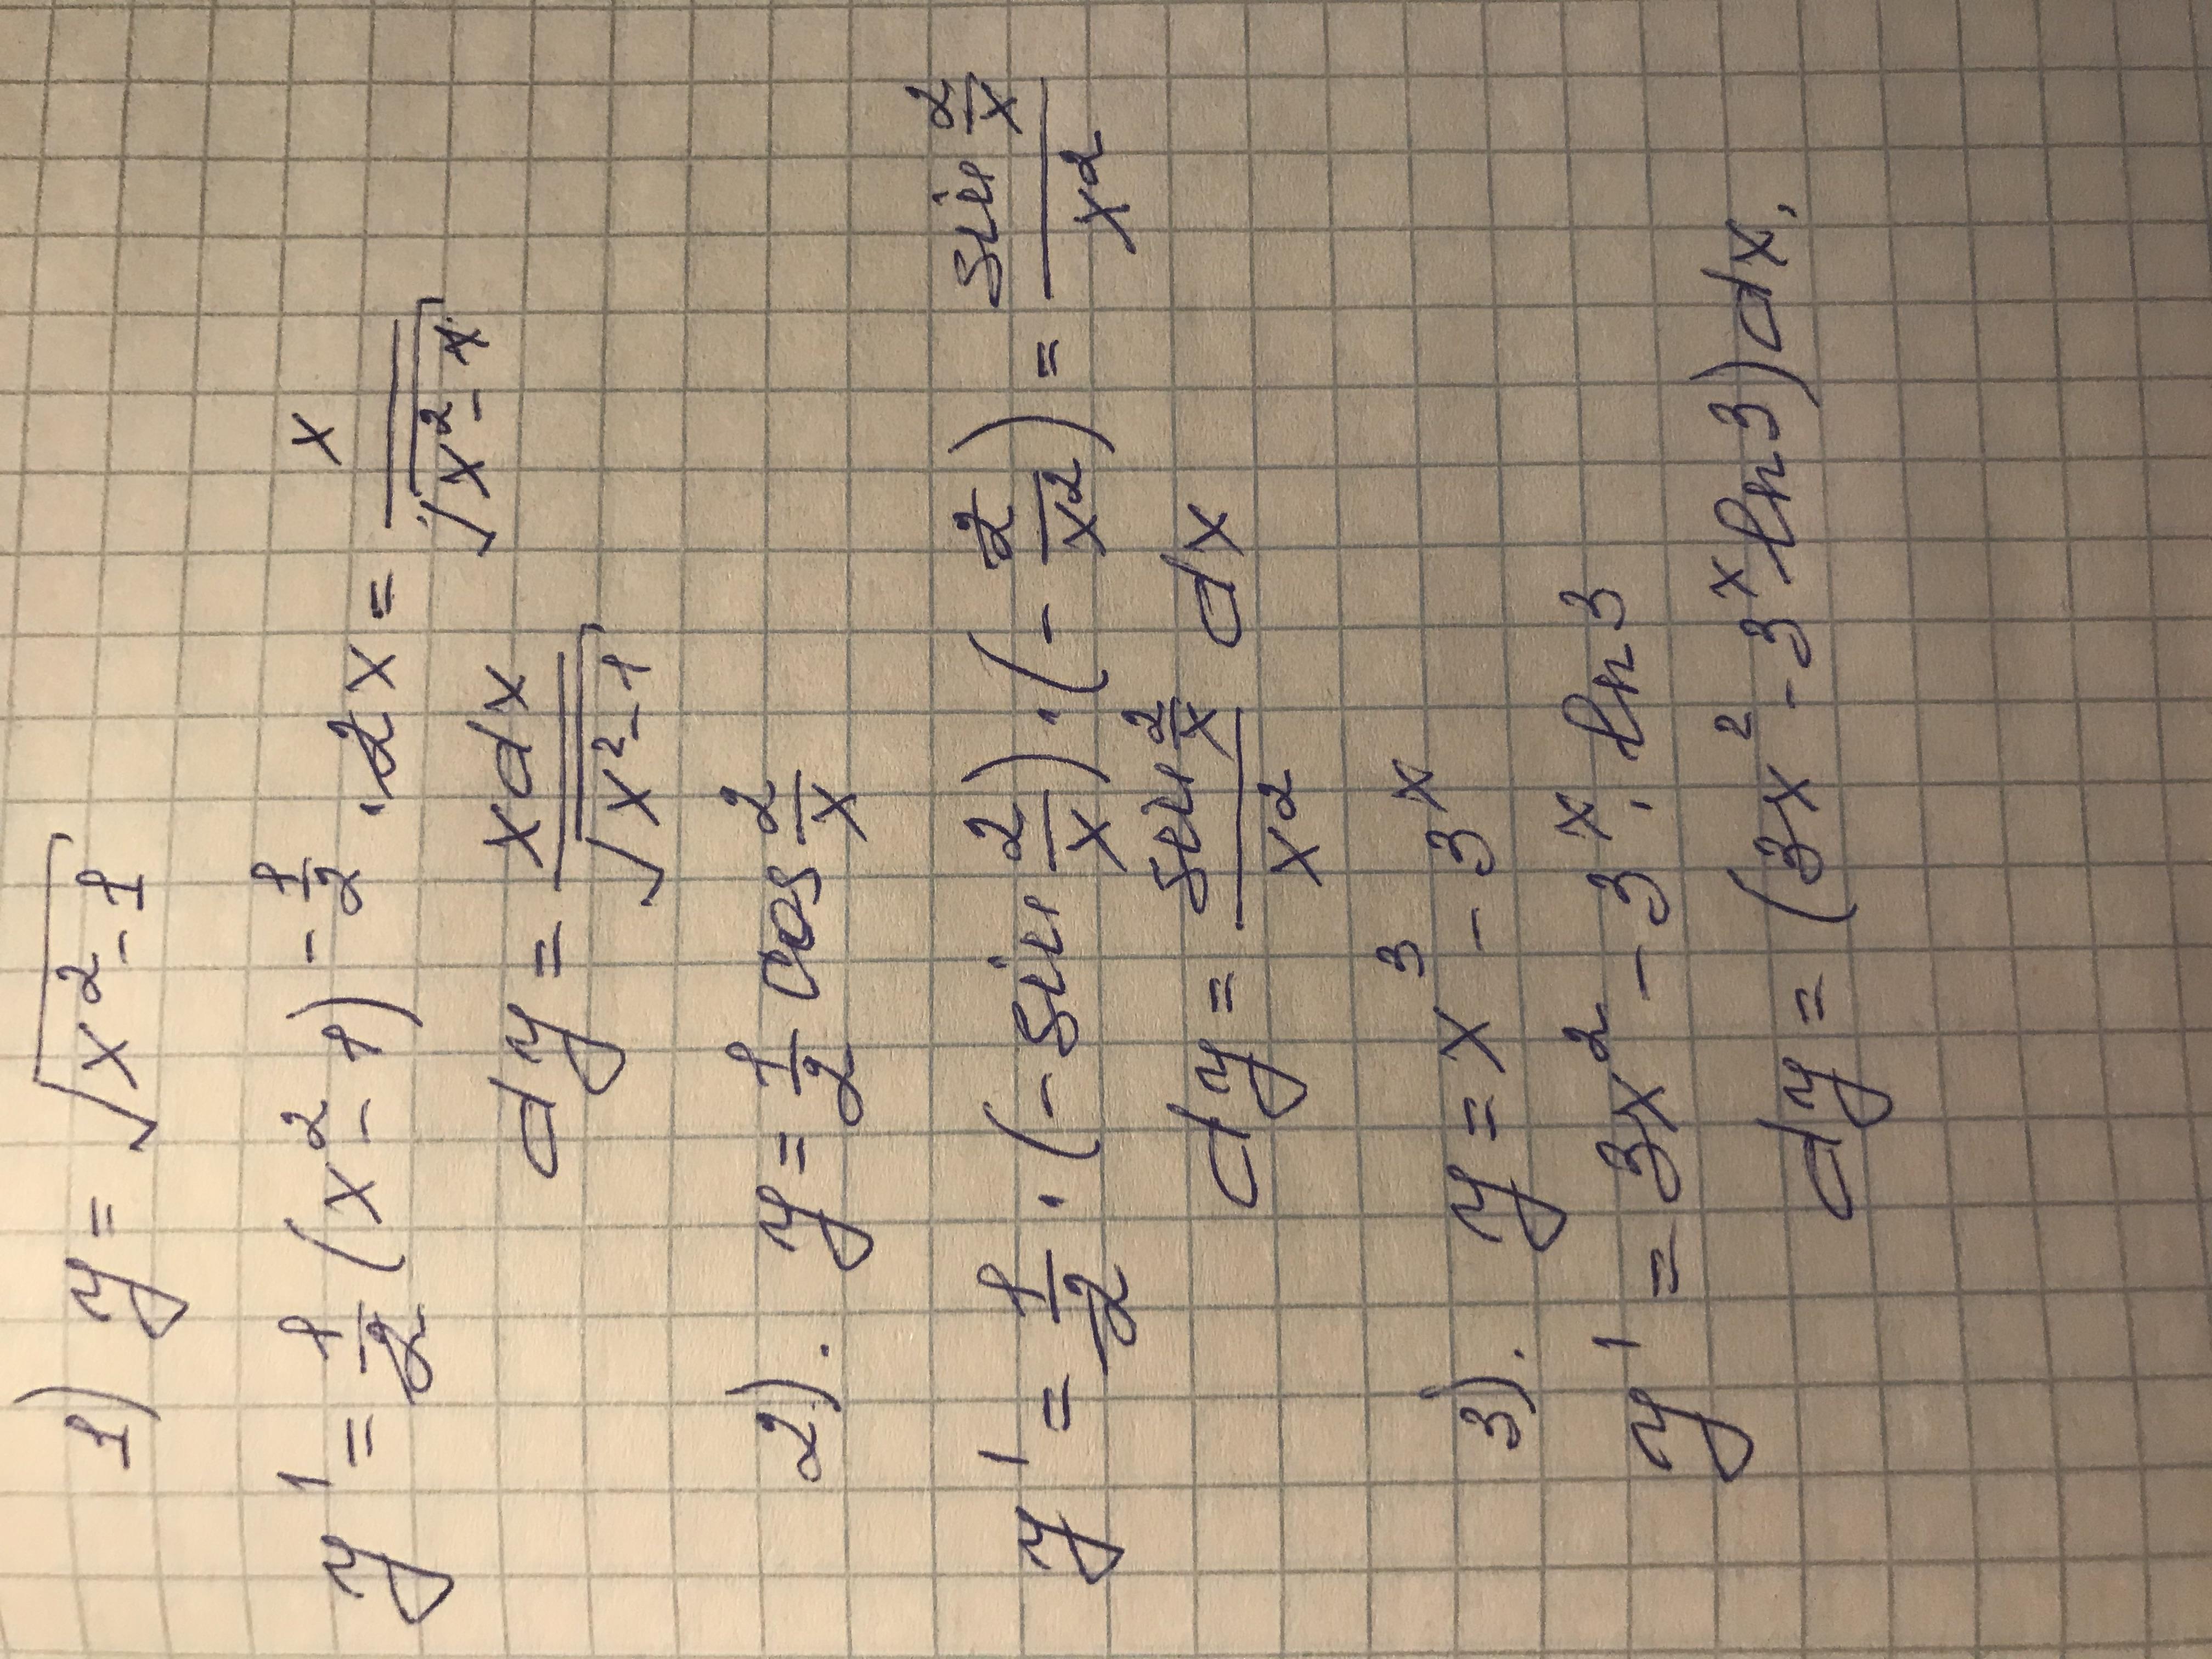 1) y = √(x² - 1)
y' = 1/2 (x² - 1)^(-1/2) · 2x = x/√(x² - 1)
dy = xdx/√(x² - 1)
2). y = 1/2 cos 2/x
y' = 1/2 · (- sin 2/x) · (- 2/x²) = sin 2/x / x²
dy = sin 2/x / x² dx
3). y = x³ - 3^x
y' = 3x² - 3^x · ln 3
dy = (3x² - 3^x ln 3) dx.